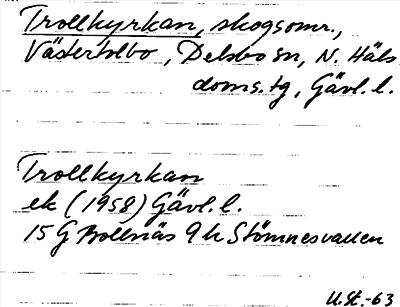 Trollkyrkan, skogsomr.,
Västertolbo, Delsbo sn, N. Häls
doms.tg, Gävl. l.
Trollkyrkan
ek (1958) Gävl. l.
15 G Bollnäs 9 h Stömnesvallen
U.St.-63